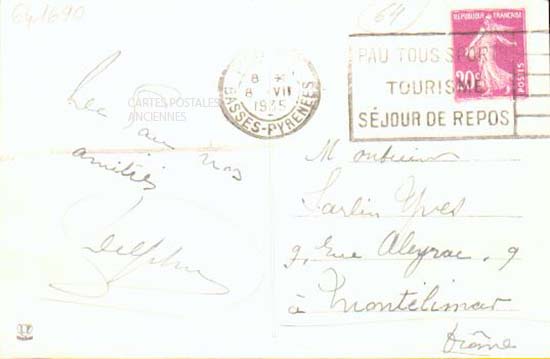 641690
(64)
RÉPUBLIQUE FRANÇAISE
20c
POSTES
8 -
8 VII
1935
BASSES-PYRÉNÉES
PAU TOUS SPORTS
TOURISME
SÉJOUR DE REPOS
CARTES POSTALES
ANCIENNES
de Pau nos
amitiés
Monsieur
Yves
9, Rue Aleyrac, 9
à Montélimar
Drôme